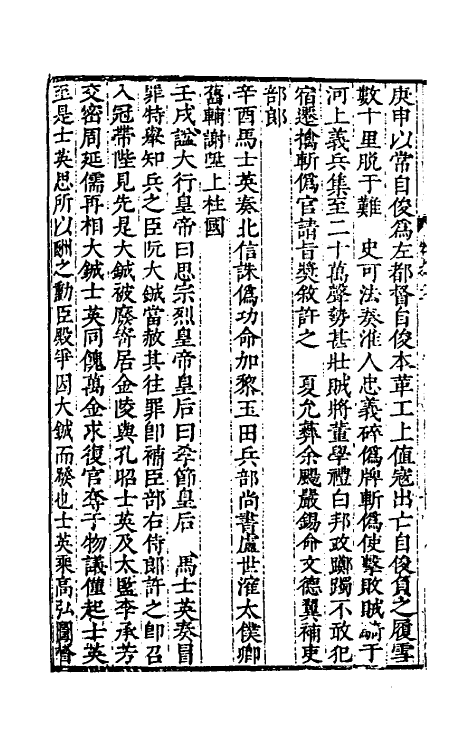 庚申以常自俊為左都督自俊本革工上值寇出亡自俊負之履雪
數十里脱于難　史可法奏淮人忠義碎偽牌斬偽使擊敗賊騎于
河上義兵集至二十萬聲勢甚壯賊將董學禮白邦政躑躅不敢犯
宿遷擒斬偽官請旨奬敘許之　夏允彝余颺嚴錫命文德翼補吏
部郎
辛酉馬士英奏北信誅偽功命加黎玉田兵部尚書盧世㴶太僕卿
舊輔謝陞上柱國
壬戌謚大行皇帝曰思宗烈皇帝皇后曰孝節皇后　馬士英奏冒
罪特舉知兵之臣阮大鋮當赦其往罪即補臣部右侍郎許之即召
入冠帶陛見先是大鋮被廢寄居金陵與孔昭士英及太監李承芳
交密周延儒再相大鋮士英同餽萬金求復官奪于物議僅起士英
至是士英思所以酬之勳臣殿爭因大鋮而發也士英乘高弘圖督